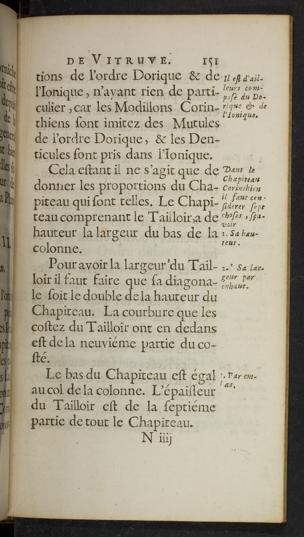 DE VITRUVE. 151
tions de l'ordre Dorique & de
l'Ionique, n'ayant rien de parti-
culier, car les Modillons Corin-
thiens sont imitez des Mutules
de l'ordre Dorique, & les Den-
ticules sont pris dans l'Ionique.
Il est d'ail-
leurs com-
posé du Do-
rique & de
l'Ionique.
Cela estant il ne s'agit que de
donner les proportions du Cha-
piteau qui sont telles. Le Chapi-
teau comprenant le Tailloir a de
hauteur la largeur du bas de la
colonne.
Dans le
Chapiteau
Corinthien
il faut con-
siderer sept
choses, sça-
voir
1. Sa hau-
teur.
Pour avoir la largeur du Tail-
loir il faut faire que sa diagona-
le soit le double de la hauteur du
Chapiteau. La courbure que les
costez du Tailloir ont en dedans
est de la neuviéme partie du co-
sté.
2. Sa lar-
geur par
enhaut.
Le bas du Chapiteau est égal
au col de la colonne. L'épaisseur
du Tailloir est de la septiéme
partie de tout le Chapiteau.
3. Par em-
bas.
N iiij